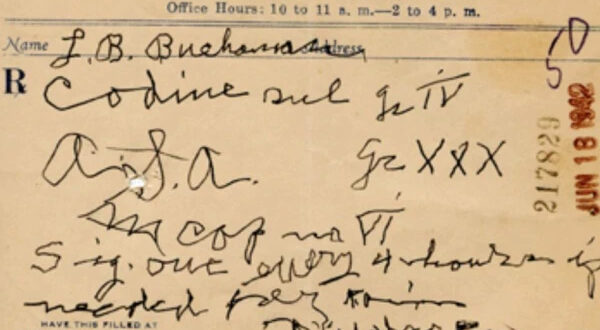 Office Hours: 10 to 11 a. m.—2 to 4 p. m.
Name L. B. Buchanan Address
R Codine sul gr IV
A.S.A. gr XXX
M cap no VI
Sig. one every 4 hours if
needed for pain
HAVE THIS FILLED AT
50
217829
JUN 18 1942